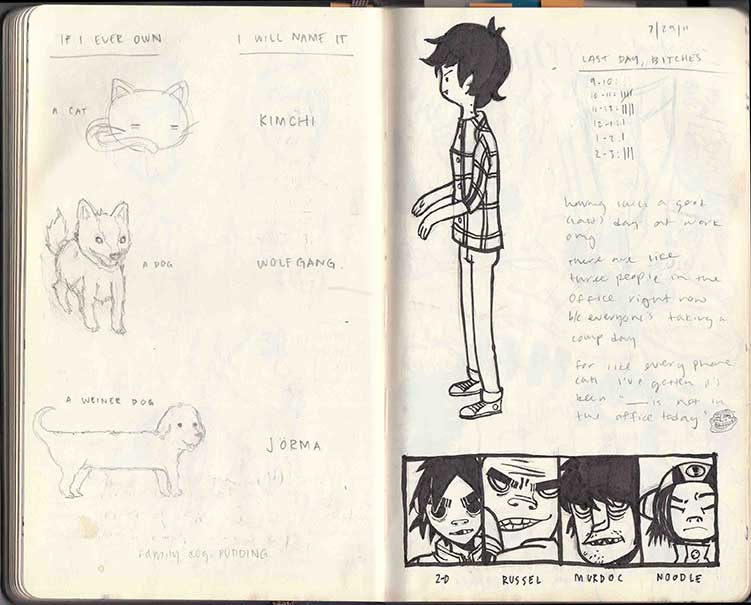 IF I EVER OWN
I WILL NAME IT
A CAT
KIMCHI
A DOG
WOLFGANG.
A WEINER DOG
JÖRMA
family dog: PUDDING
7/29/11
LAST DAY, BITCHES
9-10:
10-11: ||||
11-12: ||||
12-1: |
1-2: |
2-3: |||
having such a good
(last) day at work
omg
there are like
three people in the
office right now
b/c everyone's taking a
comp day
for like every phone
call I've gotten it's
been "___ is not in
the office today"
2-D
RUSSEL
MURDOC
NOODLE